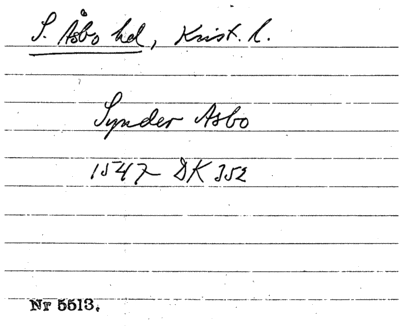 S. Åsbo hd, Krist. l.
Synder Asbo
1547 DK 352
Nr 5513.